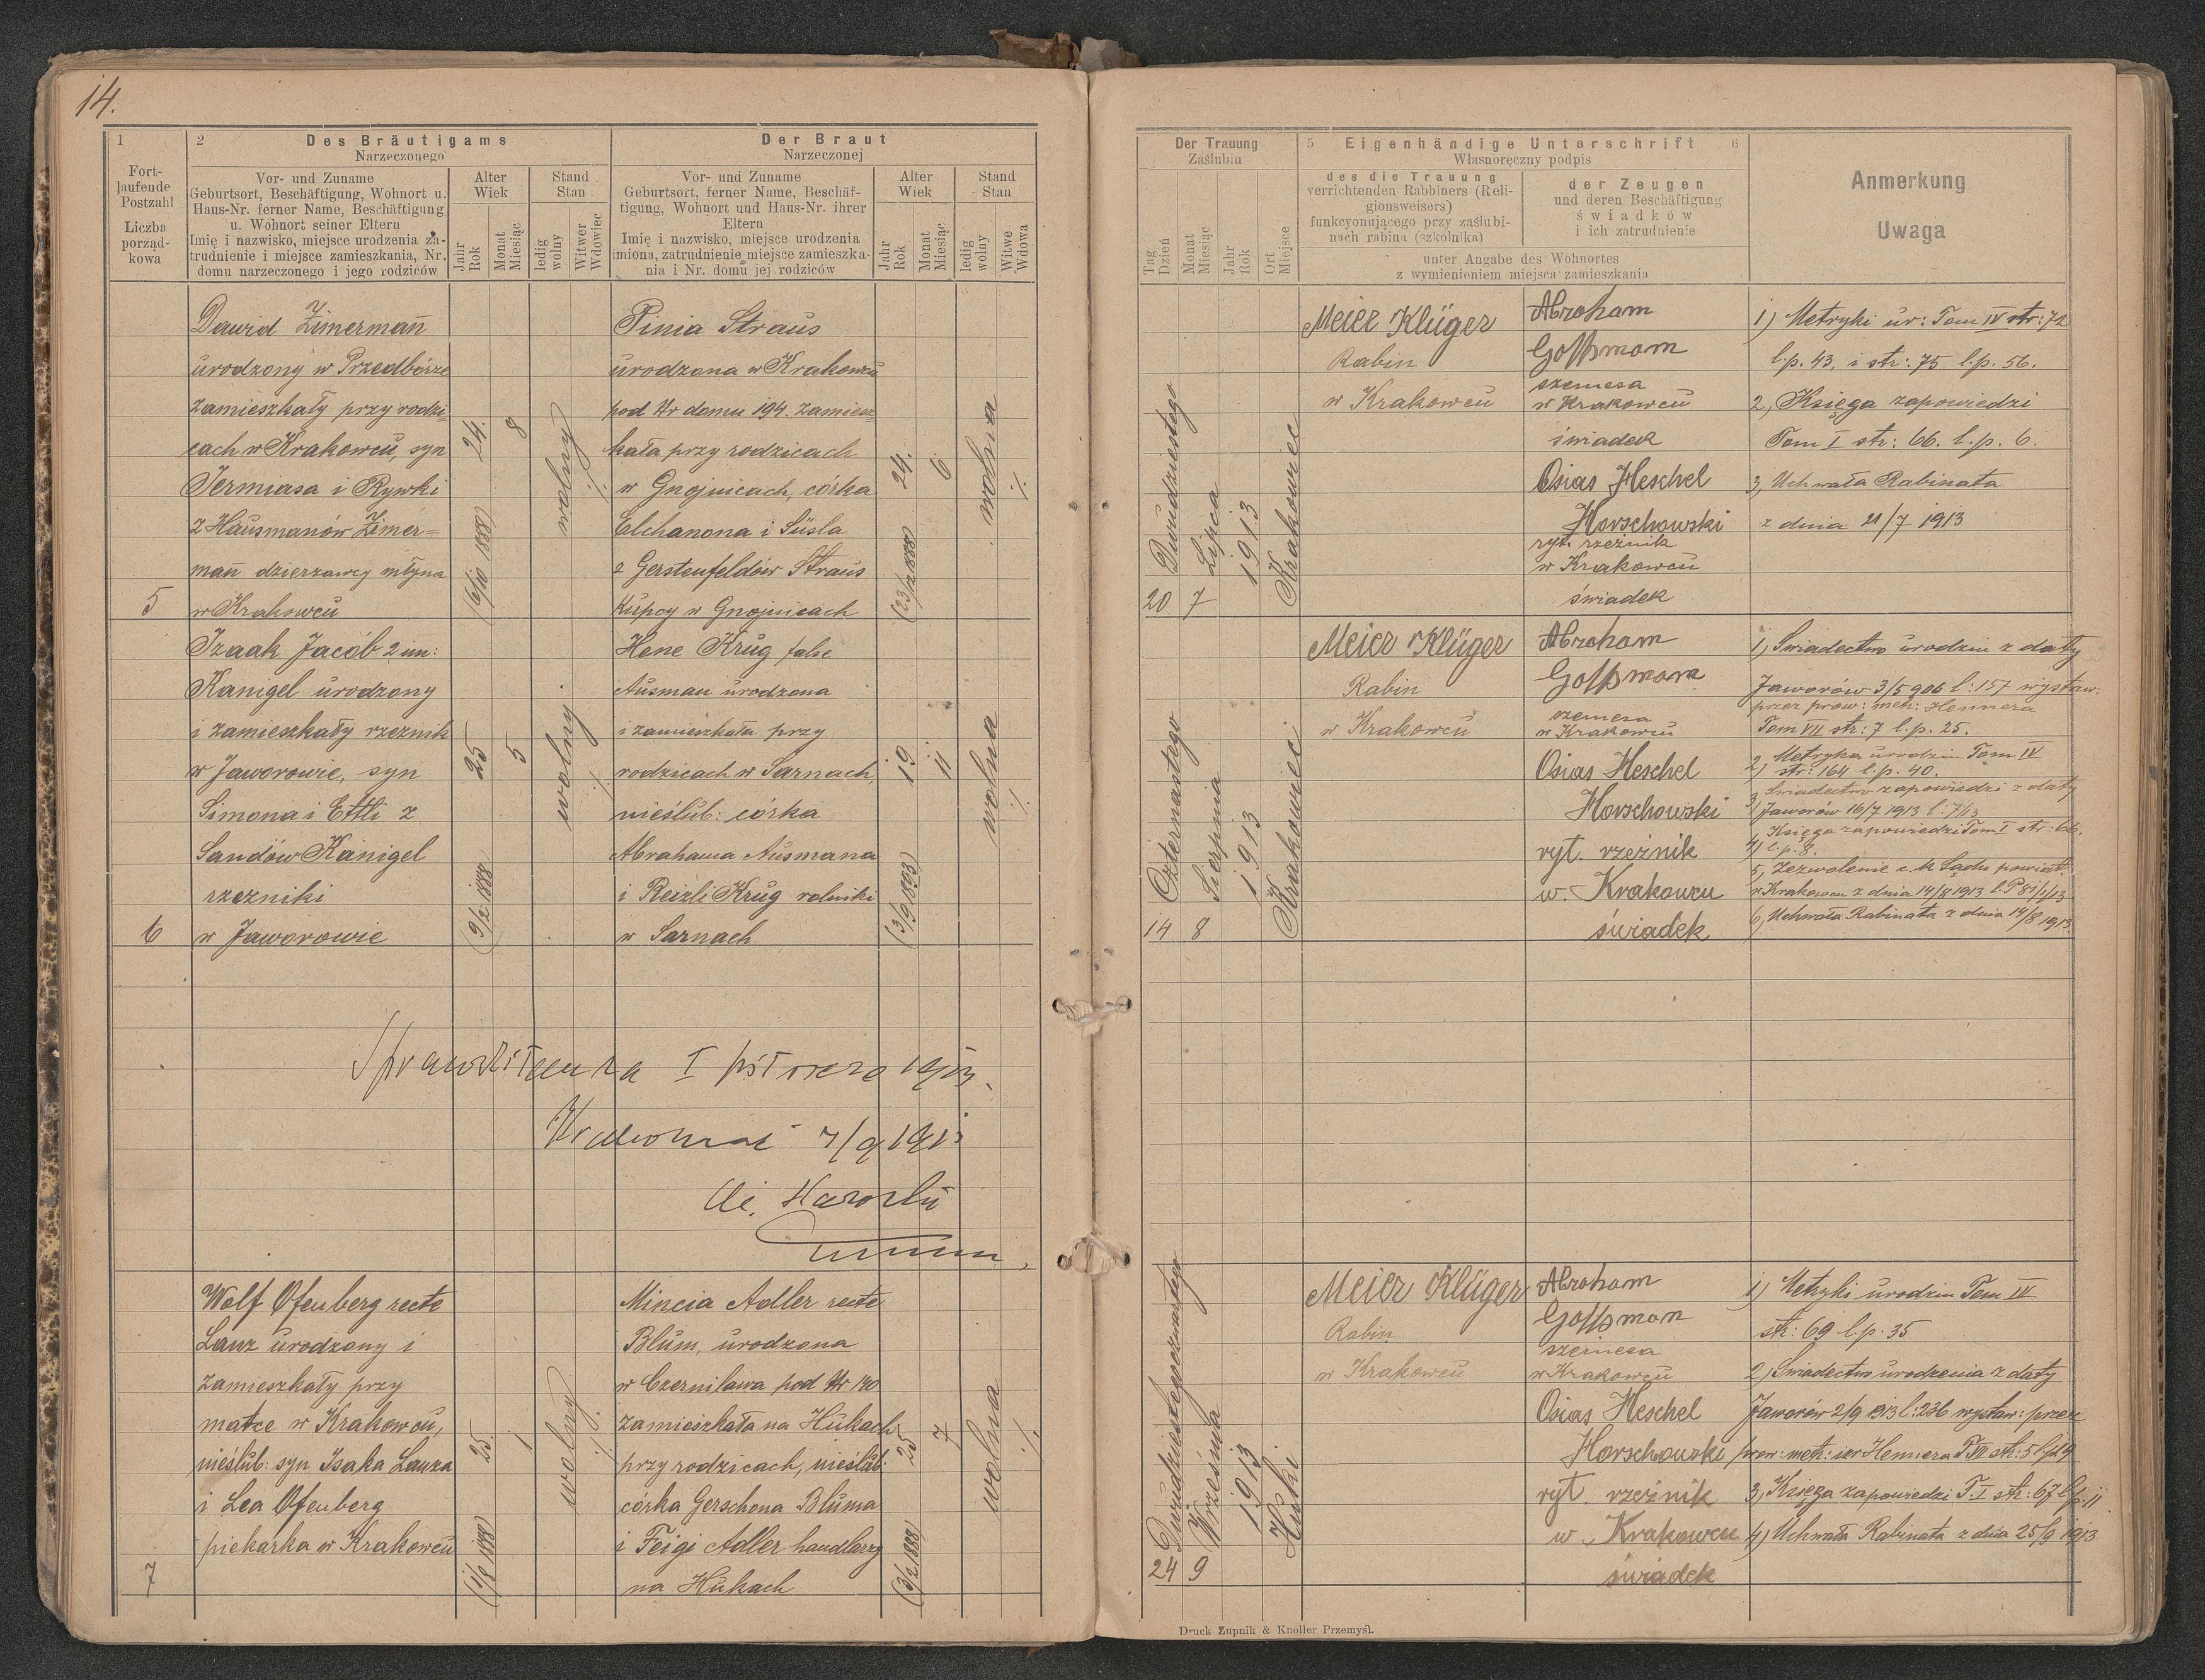 14.
1
2
Des Bräutigams
Narzeczonego
Der Braut
Narzeczonej
Fort-
laufende
Postzahl
Liczba
porząd-
kowa
Vor- und Zuname
Geburtsort, Beschäftigung, Wohnort u.
Haus-Nr. ferner Name, Beschäftigung
u. Wohnort seiner Eltern
Imię i nazwisko, miejsce urodzenia za-
trudnienie i miejsce zamieszkania, Nr.
domu narzeczonego i jego rodziców
Alter
Wiek
Jahr
Rok
Monat
Miesiąc
Stand
Stan
ledig
wolny
Witwer
Wdowiec
Vor- und Zuname
Geburtsort, ferner Name, Beschäf-
tigung, Wohnort und Haus-Nr. ihrer
Eltern
Imię i nazwisko, miejsce urodzenia
imiona, zatrudnienie miejsce zamieszka-
nia i Nr. domu jej rodziców
Alter
Wiek
Jahr
Rok
Monat
Miesiąc
Stand
Stan
ledig
wolny
Witwe
Wdowa
Dawid Zimermann
urodzony w Przedbórze
zamieszkały przy rodzi
cach w Krakowcu, syn
Jermiasa i Rywki
z Hausmanów Zimer=
mann dzierzawcy młyna
w Krakowcu
5
24.
(6/10 1888)
8
wolny
Pinia Straus
urodzona w Krakowcu
pod Nr domu 194. zamiesz
kała przy rodzicach
w Gnojnicach, córka
Elchanona i Süsla
z Gerstenfeldów Straus
kupcy w Gnojnicach
24.
(23/12 1888)
6
wolna
Izaak Jacób 2 im:
Kanigel urodzony
i zamieszkały rzeznik
w Jaworowie, syn
Simona i Ettli z
Sandów Kanigel
rzezniki
w Jaworowie
6
25
(9/2 1888)
5
wolny
Hene Krug false
Ausman urodzona
i zamieszkała przy
rodzicach w Sarnach,
nieślub: córka
Abrahama Ausmana
i Reizli Krug rolniki
w Sarnach
19
(3/9 1893)
11
wolna
I 1913.
7/9 1913
Wolf Ofenberg recte
Lauz urodzony i
zamieszkały przy
matce w Krakowcu,
nieślub: syn Isaka Lauza
i Lea Ofenberg
piekarka w Krakowcu
7
25.
(1/8 1888)
1
wolny
Mincia Adler recte
Blum, urodzona
w Czernilawa pod Nr 140
zamieszkała na Hukach
przy rodzicach, nieślub:
córka Gerschona Bluma
i Feigi Adler handlarzy
na Hukach
25
(3/2 1888)
7
wolna
Der Trauung
Zaślubin
Tag
Dzień
Monat
Miesiąc
Jahr
Rok
Ort
Miejsce
5
Eigenhändige Unterschrift
6
Własnoręczny podpis
des die Trauung
verrichtenden Rabbiners (Reli-
gionsweisers)
funkcyonującego przy zaślubi-
nach rabina (szkolnika)
der Zeugen
und deren Beschäftigung
świadków
i ich zatrudnienie
unter Angabe des Wohnortes
z wymienieniem miejsca zamieszkania
Anmerkung
Uwaga
Dwudziestego
20
Lipca
7
1913
Krakowiec
Meier Klüger
Rabin
w Krakowcu
Abroham
Gottsmann
szemesa
w Krakowcu
świadek
Osias Heschel
Horschowski
ryt. rzeźnik
w Krakowcu
świadek
1) Metryki ur: Tom IV str: 72
l.p. 43. i str: 75 l.p. 56.
2, Księga zapowiedzi
Tom I str: 66. l.p. 6.
3, Uchwała Rabinata
z dnia 20/7 1913
Czternastego
14
Sierpnia
8
1913
Krakowiec
Meier Klüger
Rabin
w Krakowcu
Abroham
Gottsmann
szemesa
w Krakowcu
Osias Heschel
Horschowski
ryt. rzeźnik
w. Krakowcu
świadek
1, Świadectwo urodzin z daty
Jaworów 3/5 906 l: 157 wystaw:
przez prow: metr: Hennera
Tom VII str: 7 l.p. 25.
2, Metryka urodzin Tom IV
str: 164 l.p. 40.
3, Świadectwo zapowiedzi z daty
Jaworów 16/7 1913 l: 743
4) Księga zapowiedzi Tom I str: 66.
l.p. 8.
5, Zezwolenie c.k. Sądu powiat.
w Krakowcu z dnia 14/8 1913
6, Uchwała Rabinata z dnia 14/8 1913.
Dwudziestegoczwartego
24
Września
9
1913
Huki
Meier Klüger
Rabin
w Krakowcu
Abroham
Gottsman
szemesa
w Krakowcu
Osias Heschel
Horschowski
ryt. rzeźnik
w. Krakowcu
świadek
1) Metryki urodzin Tom IV
str: 69 l.p. 35
2) Świadectwo urodzenia z daty
Jaworów 2/9 1913 l: 236 wystaw: przez
prow: metr: izr Hennera
3, Księga zapowiedzi T. I str: 67 l.p. 11
4) Uchwała Rabinata z dnia 25/9 1913
Druck Zupnik & Knoller Przemyśl.